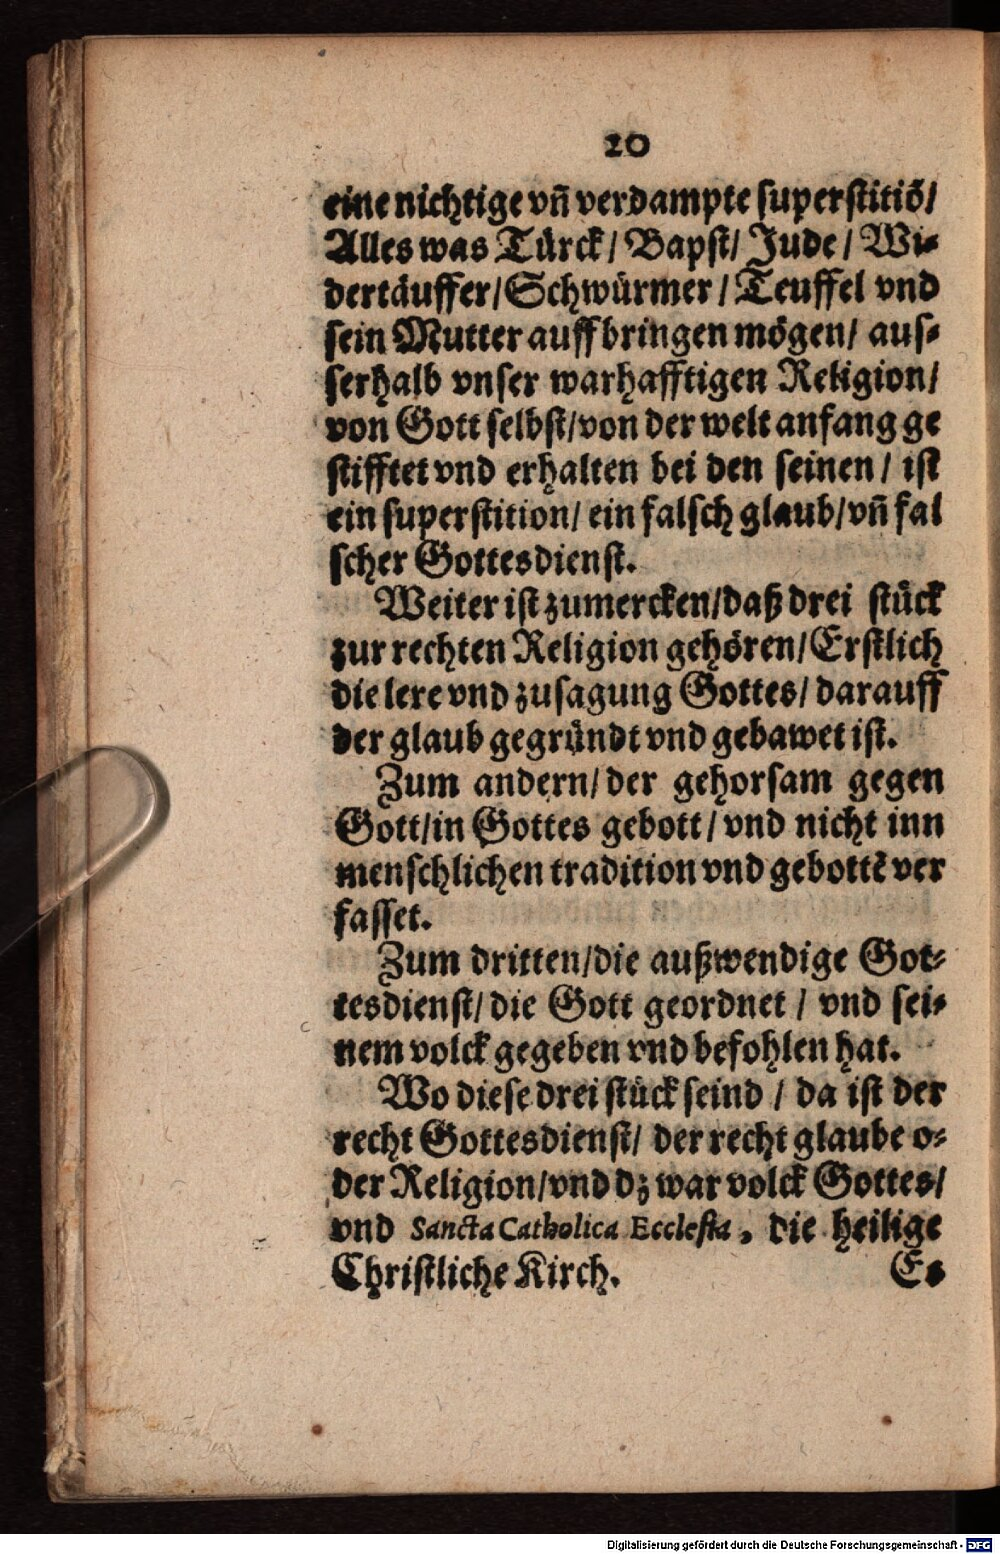 20
eine nichtige vñ verdampte superstitiō/
Alles was Türck / Bapst / Jude / Wi-
dertäuffer / Schwürmer / Teuffel vnd
sein Mutter auffbringen mögen / aus-
serhalb vnser warhafftigen Religion /
von Gott selbst / von der welt anfang ge
stifftet vnd erhalten bei den seinen / ist
ein superstition / ein falsch glaub / vñ fal
scher Gottesdienst.
Weiter ist zumercken / daß drei stück
zur rechten Religion gehören / Erstlich
die lere vnd zusagung Gottes / darauff
der glaub gegründt vnd gebawet ist.
Zum andern / der gehorsam gegen
Gott / in Gottes gebott / vnd nicht inn
menschlichen tradition vnd gebottē ver
fasset.
Zum dritten / die außwendige Got-
tesdienst / die Gott geordnet / vnd sei-
nem volck gegeben vnd befohlen hat.
Wo diese drei stück seind / da ist der
recht Gottesdienst / der recht glaube o-
der Religion / vnd dz war volck Gottes /
vnd Sancta Catholica Ecclesia, die heilige
Christliche Kirch. Es
Digitalisierung gefördert durch die Deutsche Forschungsgemeinschaft - DFG